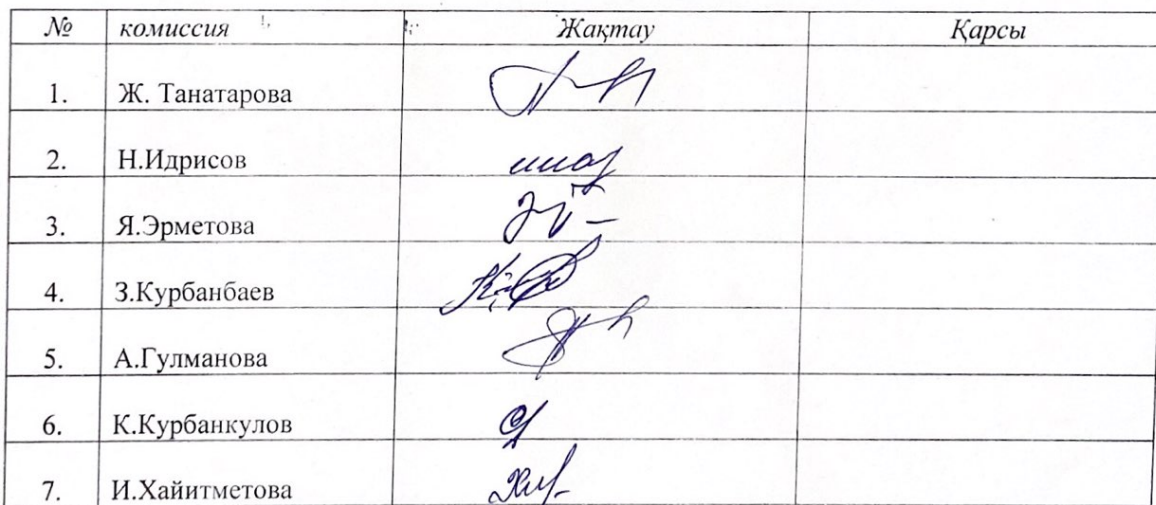 № комиссия Жақтау Қарсы
1. Ж. Танатарова
2. Н.Идрисов
3. Я.Эрметова
4. З.Курбанбаев
5. А.Гулманова
6. К.Курбанкулов
7. И.Хайитметова